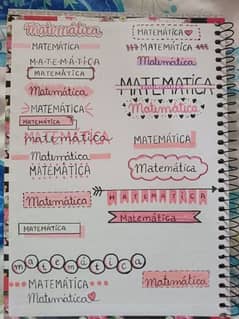 Matemática
MATEMÁTICA
M-A-T-E-M-Á-T-I-C-A
MATEMÁTICA
Matemática
MATEMÁTICA
MATEMÁTICA
matemática
Matemática
MATEMÁTICA
Matemática
MATEMÁTICA
matemática
MATEMÁTICA
Matemática
MATEMÁTICA
MATEMÁTICA
Matemática
MATEMÁTICA
Matemática
MATEMÁTICA
Matemática
MATEMÁTICA
Matemática
Matemática